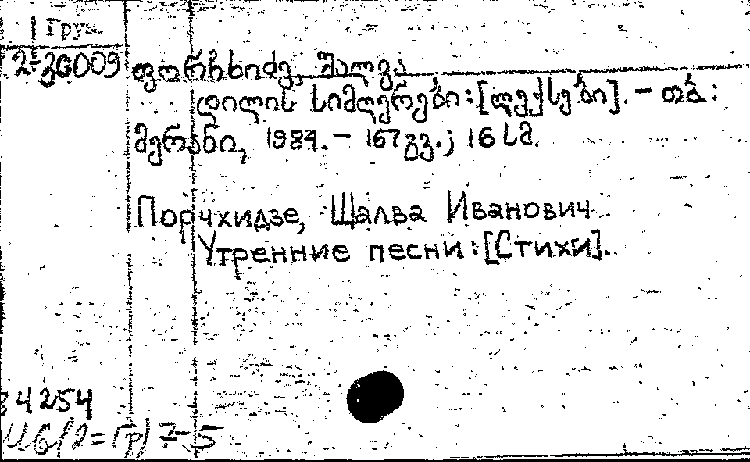 Груз.
2-36009 ფორჩხიძე, შალვა
დილის სიმღერები : [ლექსები]. – თბ. :
მერანი, 1984. – 167 გვ.; 16 სმ.
Порчхидзе, Шалва Иванович
Утренние песни : [Стихи].
4254